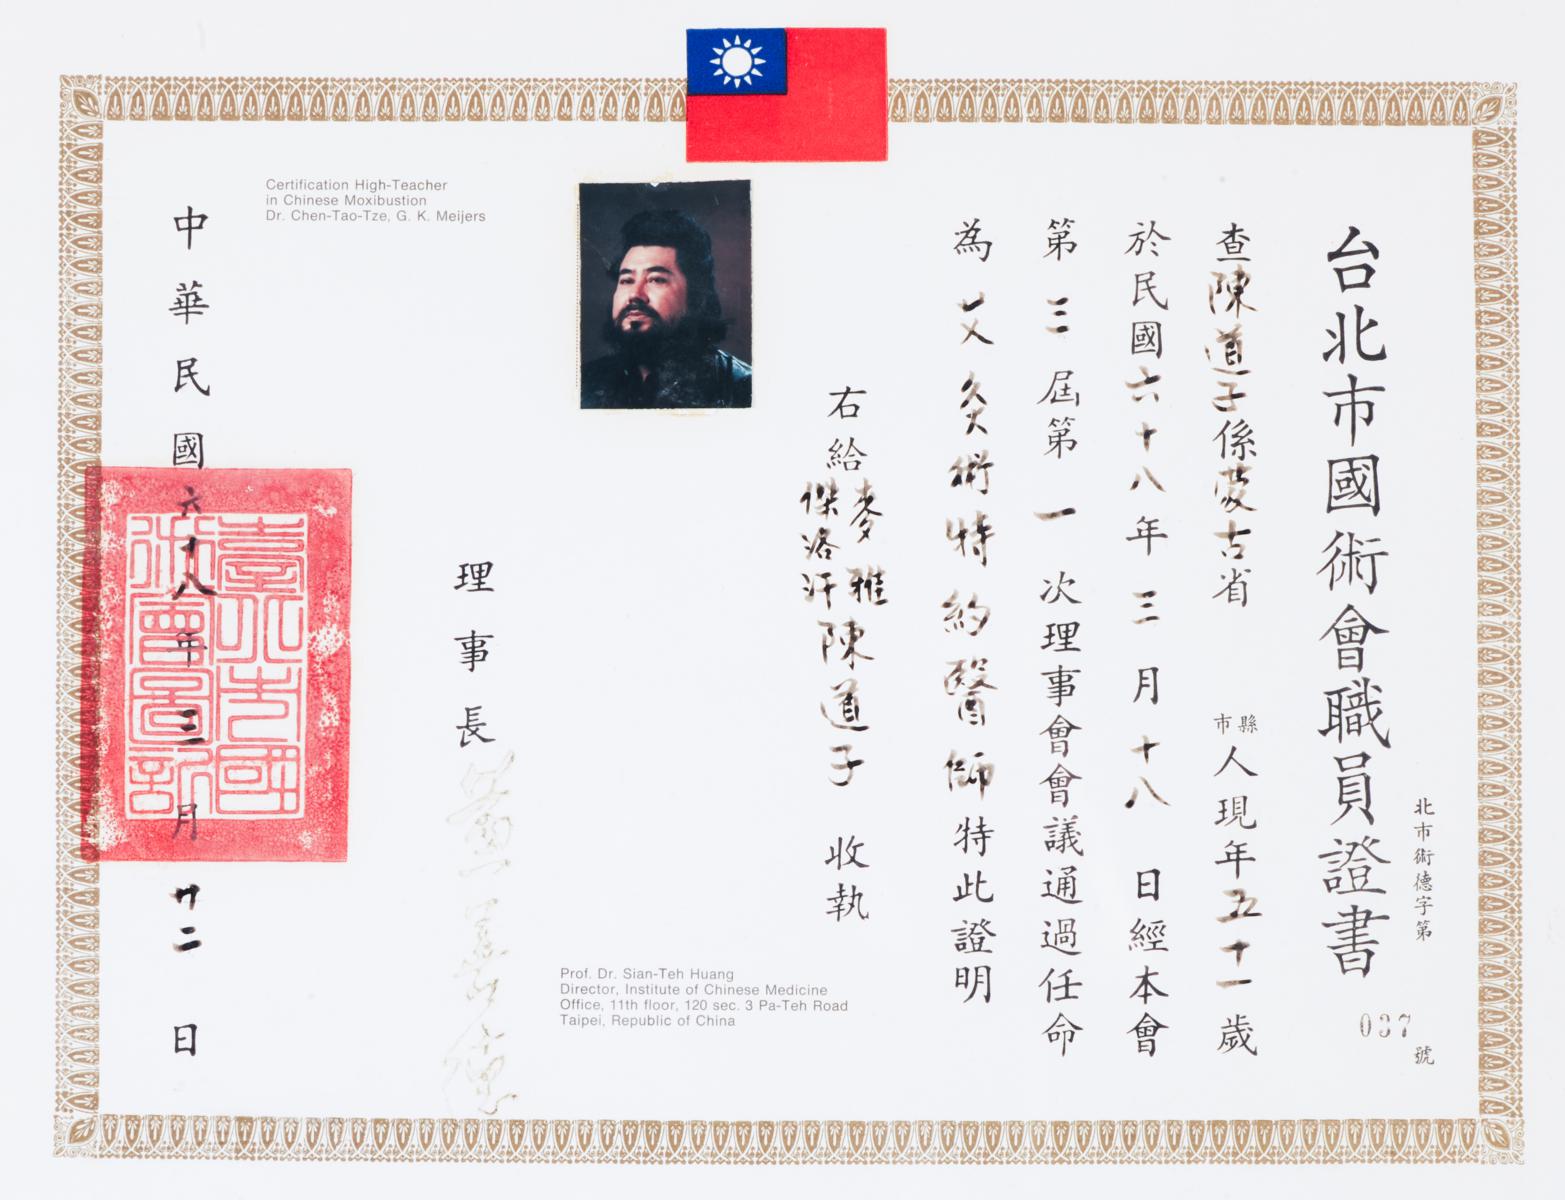 台北市國術會職員證書
北市術德字第
037
號
查陳道子係蒙古省
縣
市
人現年五十一歲
於民國六十八年三月十八日經本會
第三屆第一次理事會會議通過任命
為艾灸術特約醫師特此證明
右給
麥雅
傑洛汗
陳道子收執
理事長
中華民國六十八年三月廿二日
Certification High-Teacher
in Chinese Moxibustion
Dr. Chen-Tao-Tze, G. K. Meijers
Prof. Dr. Sian-Teh Huang
Director, Institute of Chinese Medicine
Office, 11th floor, 120 sec. 3 Pa-Teh Road
Taipei, Republic of China